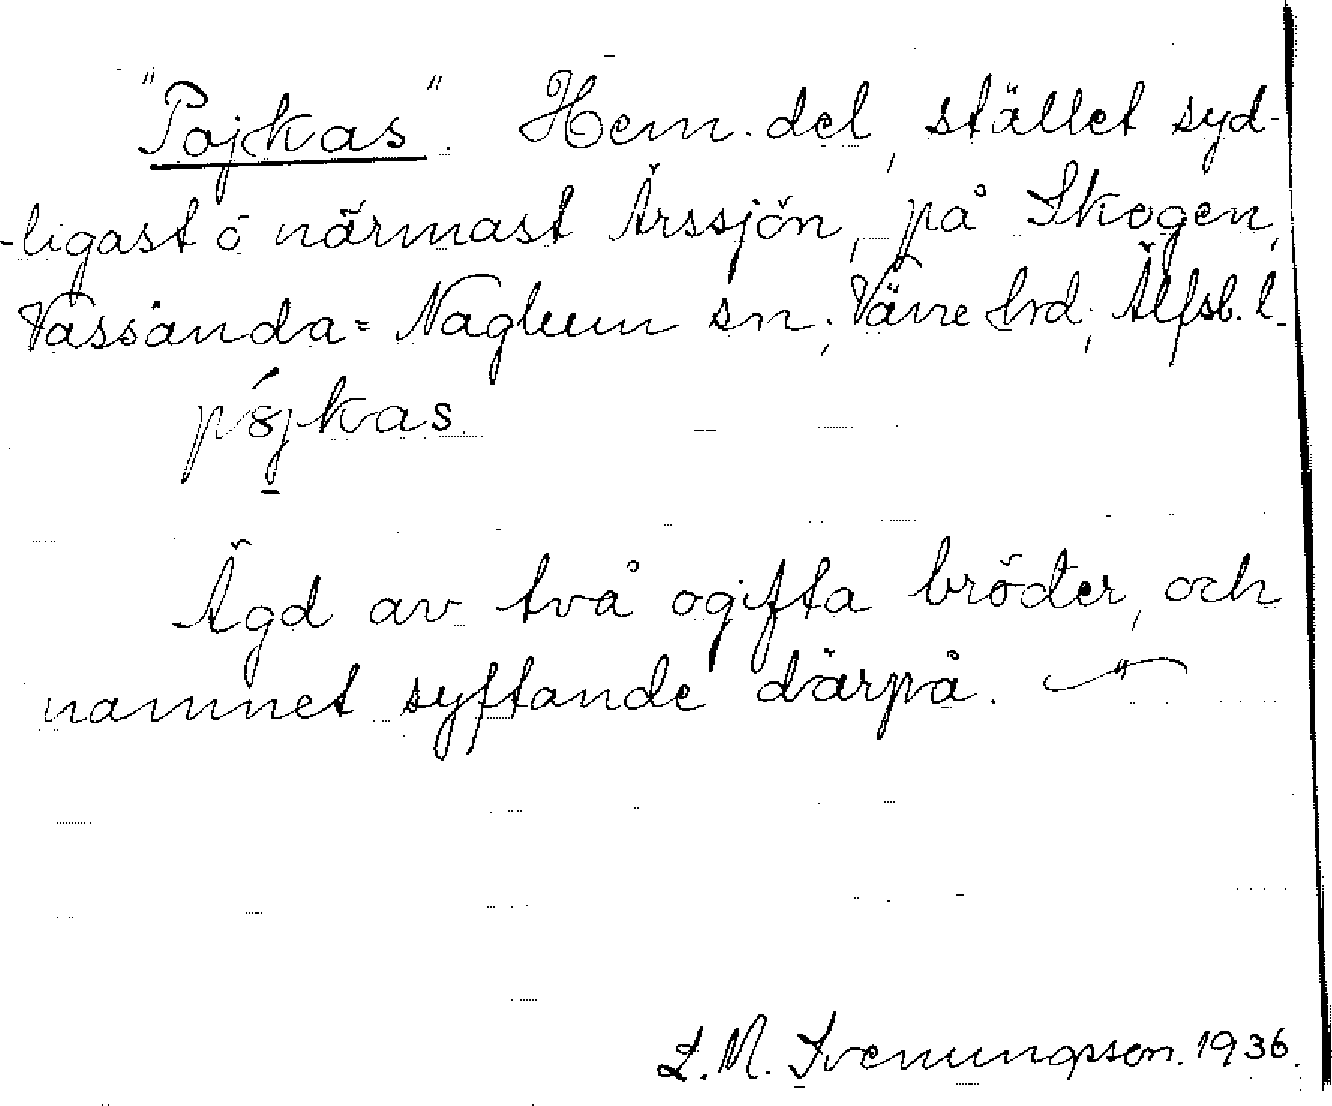 "Pojkas". Hem. del, stället syd-
-ligast o närmast Ärssjön, på Skogen,
Vassända=Naglum sn; Väne hrd; Älfsb. l.
pöjkas.
Ägd av två ogifta bröder, och
namnet syftande därpå. — " —
L. M. Svenungsson. 1936.